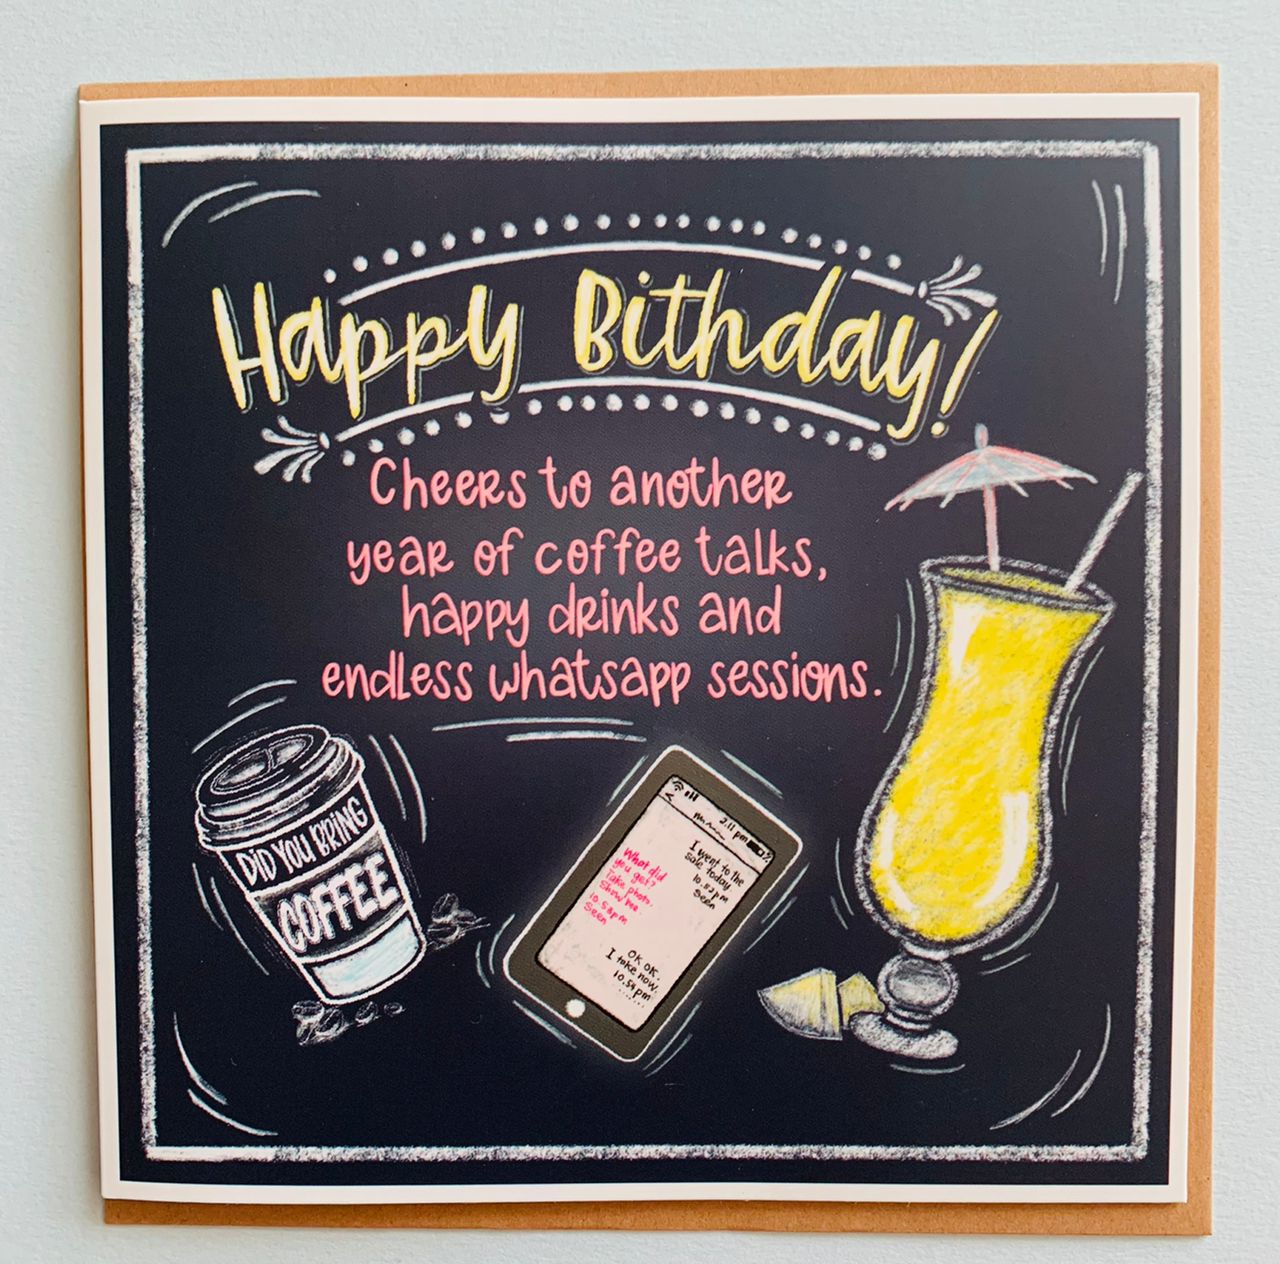 Happy Bithday!
Cheers to another
year of coffee talks,
happy drinks and
endless whatsapp sessions.
DID YOU BRING
COFFEE
2.11 pm
I went to the
sale today.
10.52pm
Seen
What did
you get?
Take photo.
Show me.
10.53pm
Seen
OK OK.
I take now.
10.54pm
.......